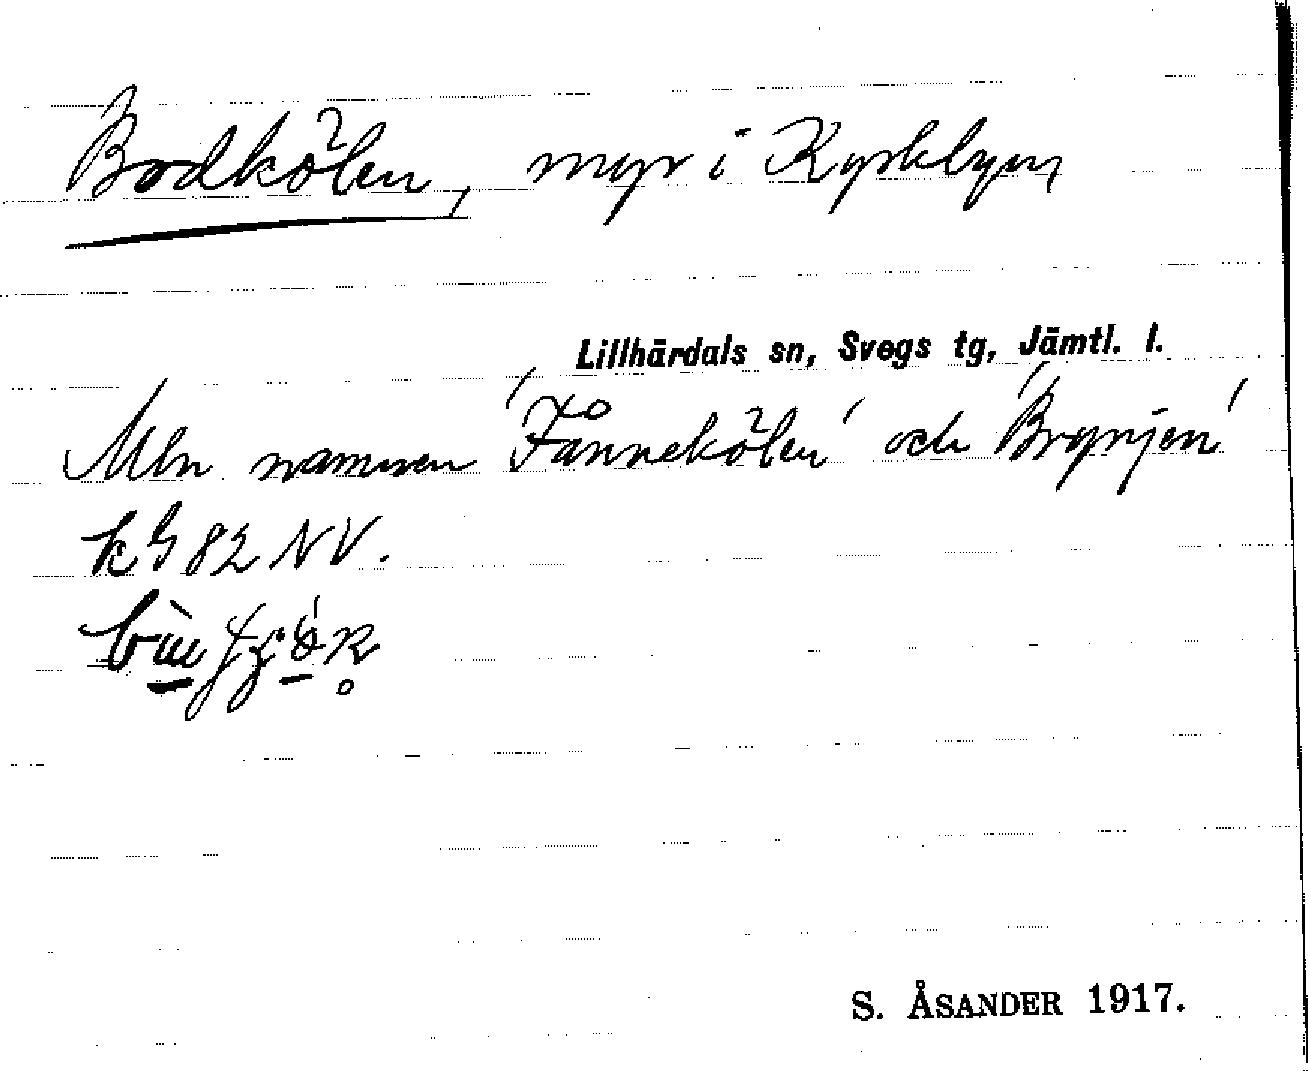 Bodkölen, myr i Kyrkbyn
Lillhärdals sn, Svegs tg, Jämtl. l.
Mln namnen 'Fånnekölen' och 'Brynjen'
k G 82 NV.
S. ÅSANDER 1917.